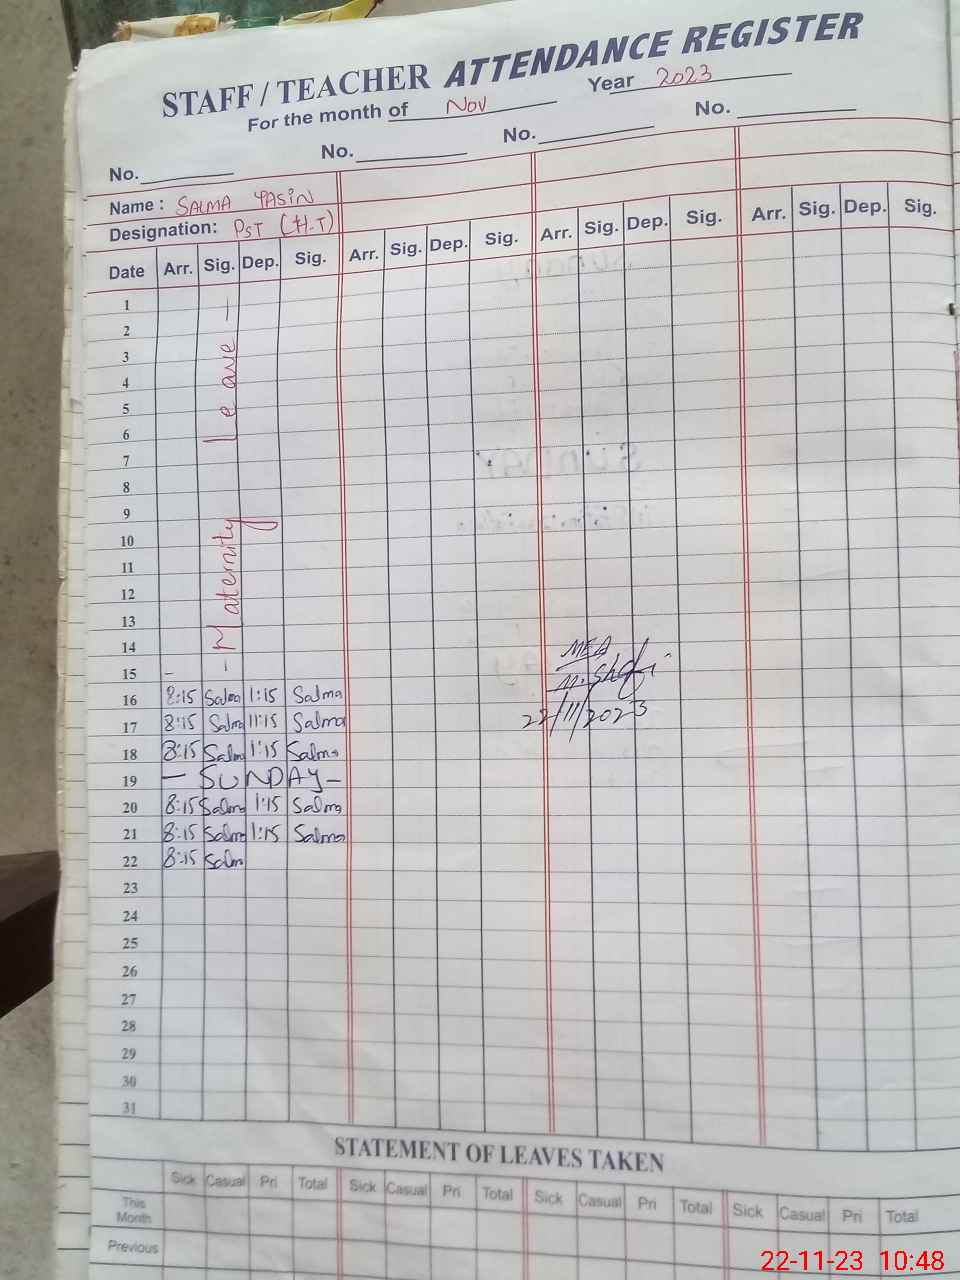 STAFF / TEACHER ATTENDANCE REGISTER
For the month of Nov Year 2023
No. No. No. No.
Name : SALMA YASIN
Designation: PST (H-T)
Date Arr. Sig. Dep. Sig. Arr. Sig. Dep. Sig. Arr. Sig. Dep. Sig. Arr. Sig. Dep. Sig.
- Maternity Leave -
1
2
3
4
5
6
7
8
9
10
11
12
13
14 MEA
15 - M. Shafi
16 8:15 Salma 1:15 Salma
22/11/2023
17 8:15 Salma 11:15 Salma
18 8:15 Salma 1:15 Salma
19 - SUNDAY -
20 8:15 Salma 1:15 Salma
21 8:15 Salma 1:15 Salma
22 8:15 Salm
23
24
25
26
27
28
29
30
31
STATEMENT OF LEAVES TAKEN
Sick Casual Pri Total Sick Casual Pri Total Sick Casual Pri Total Sick Casual Pri Total
This
Month
Previous
22-11-23 10:48